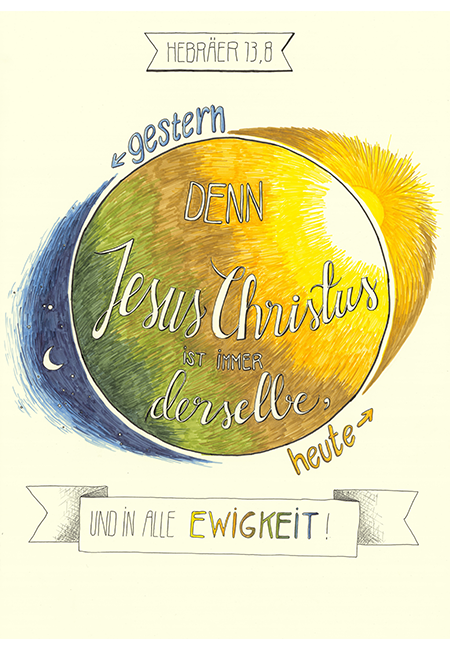 HEBRÄER 13,8
gestern
DENN
Jesus Christus
IST IMMER
derselbe,
heute
UND IN ALLE EWIGKEIT!